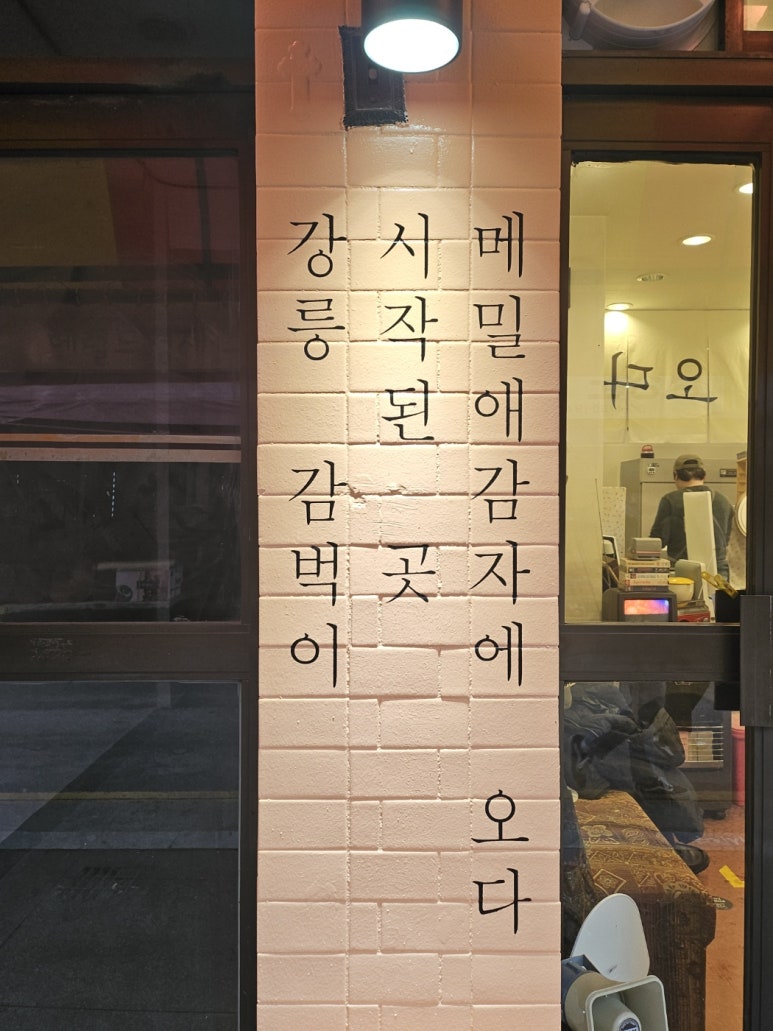 메밀애감자에 오다
시작된 곳
강릉 감벅이
오다